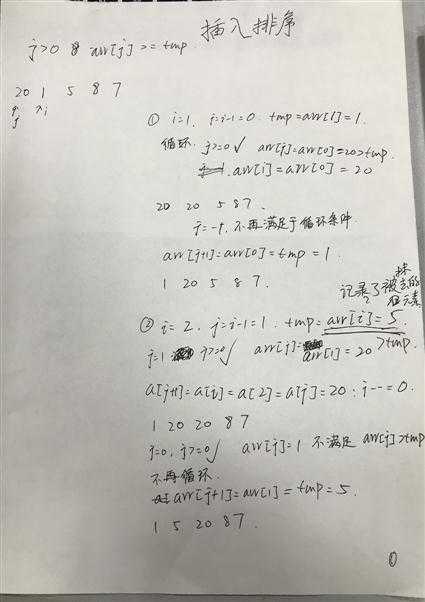 插入排序
j>0 & arr[j] >= tmp
20 1 5 8 7
j i
① i=1, j=i-1=0. tmp=arr[1]=1.
循环. j>=0 ✓ arr[j]=arr[0]=20>tmp.
arr[i]=arr[0]=20
20 20 5 8 7.
j=-1, 不再满足于循环条件
arr[j+1]=arr[0]=tmp=1.
1 20 5 8 7.
记录了被抹去的元素
② i=2, j=i-1=1. tmp=arr[i]=5.
j=1 j>=0 ✓ arr[j]=arr[1]=20>tmp.
a[j+1]=a[i]=a[2]=a[j]=20; j--=0.
1 20 20 8 7
j=0, j>=0 ✓ arr[j]=1 不满足 arr[j]>tmp
不再循环.
arr[j+1]=arr[1]=tmp=5.
1 5 20 8 7.
①